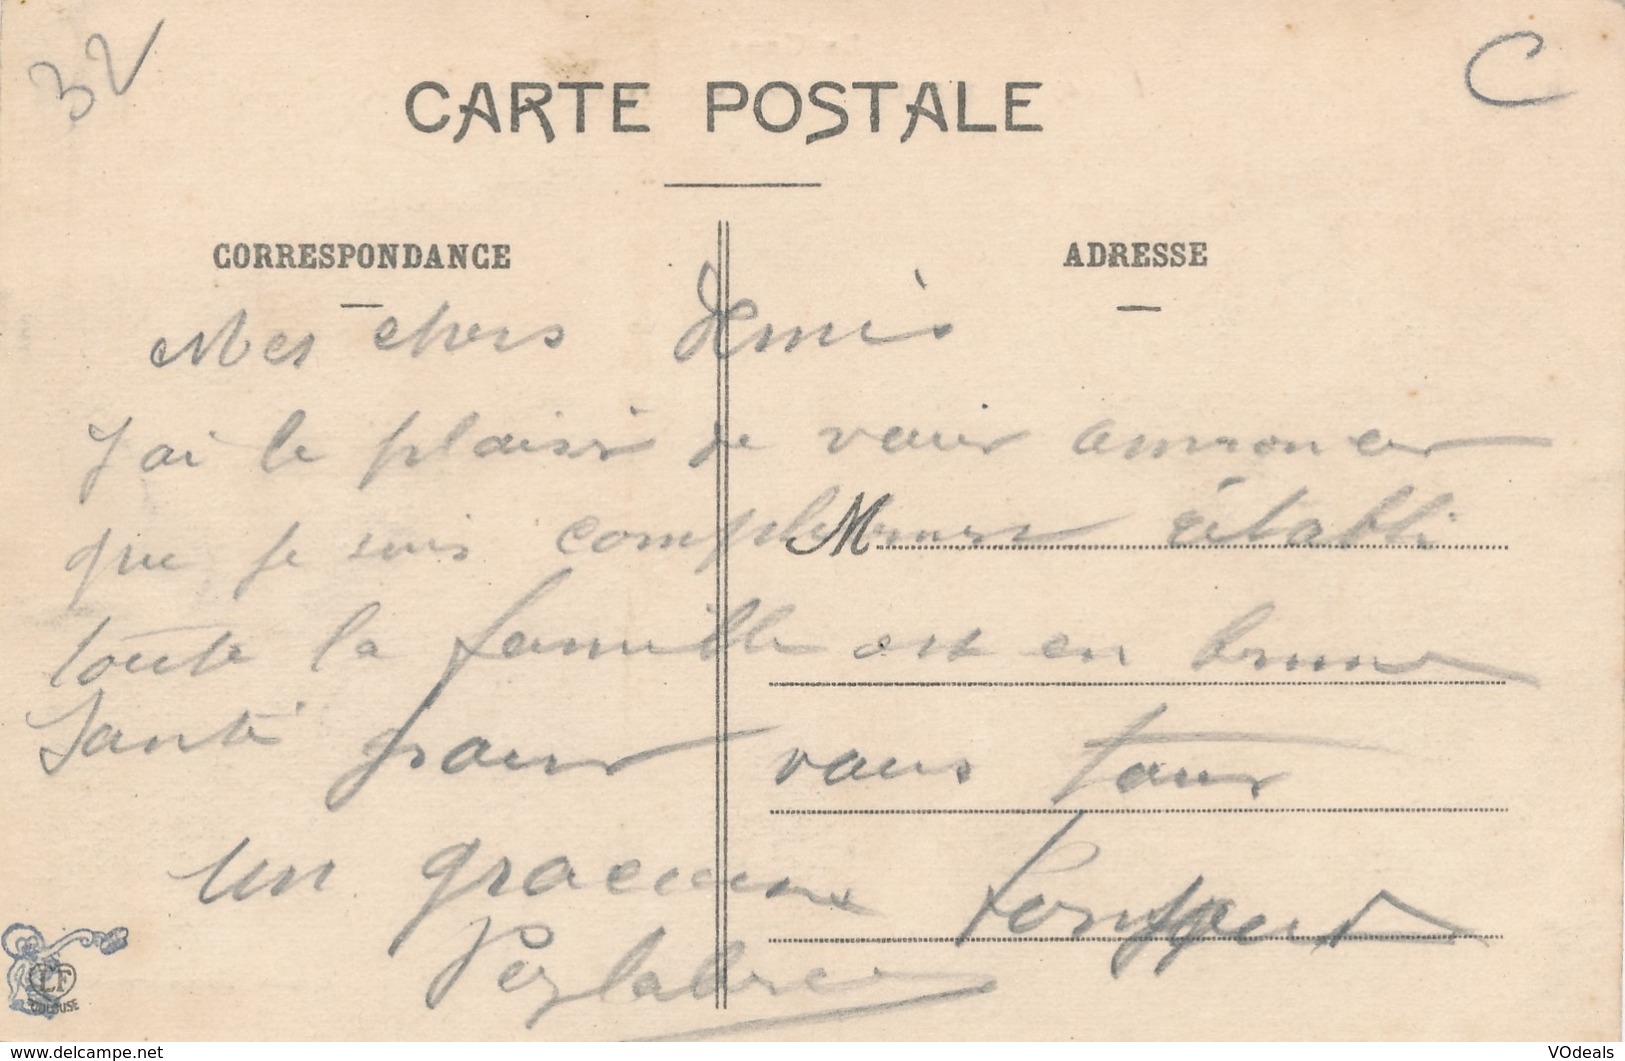 32
C
CARTE POSTALE
CORRESPONDANCE
ADRESSE
Mes chers Amis
J'ai le plaisir de venir annoncer
que je suis complètement établi
M
toute la famille est en bonne
santé pour vous tous
un gracieux
LF
TOULOUSE
www.delcampe.net
VOdeals